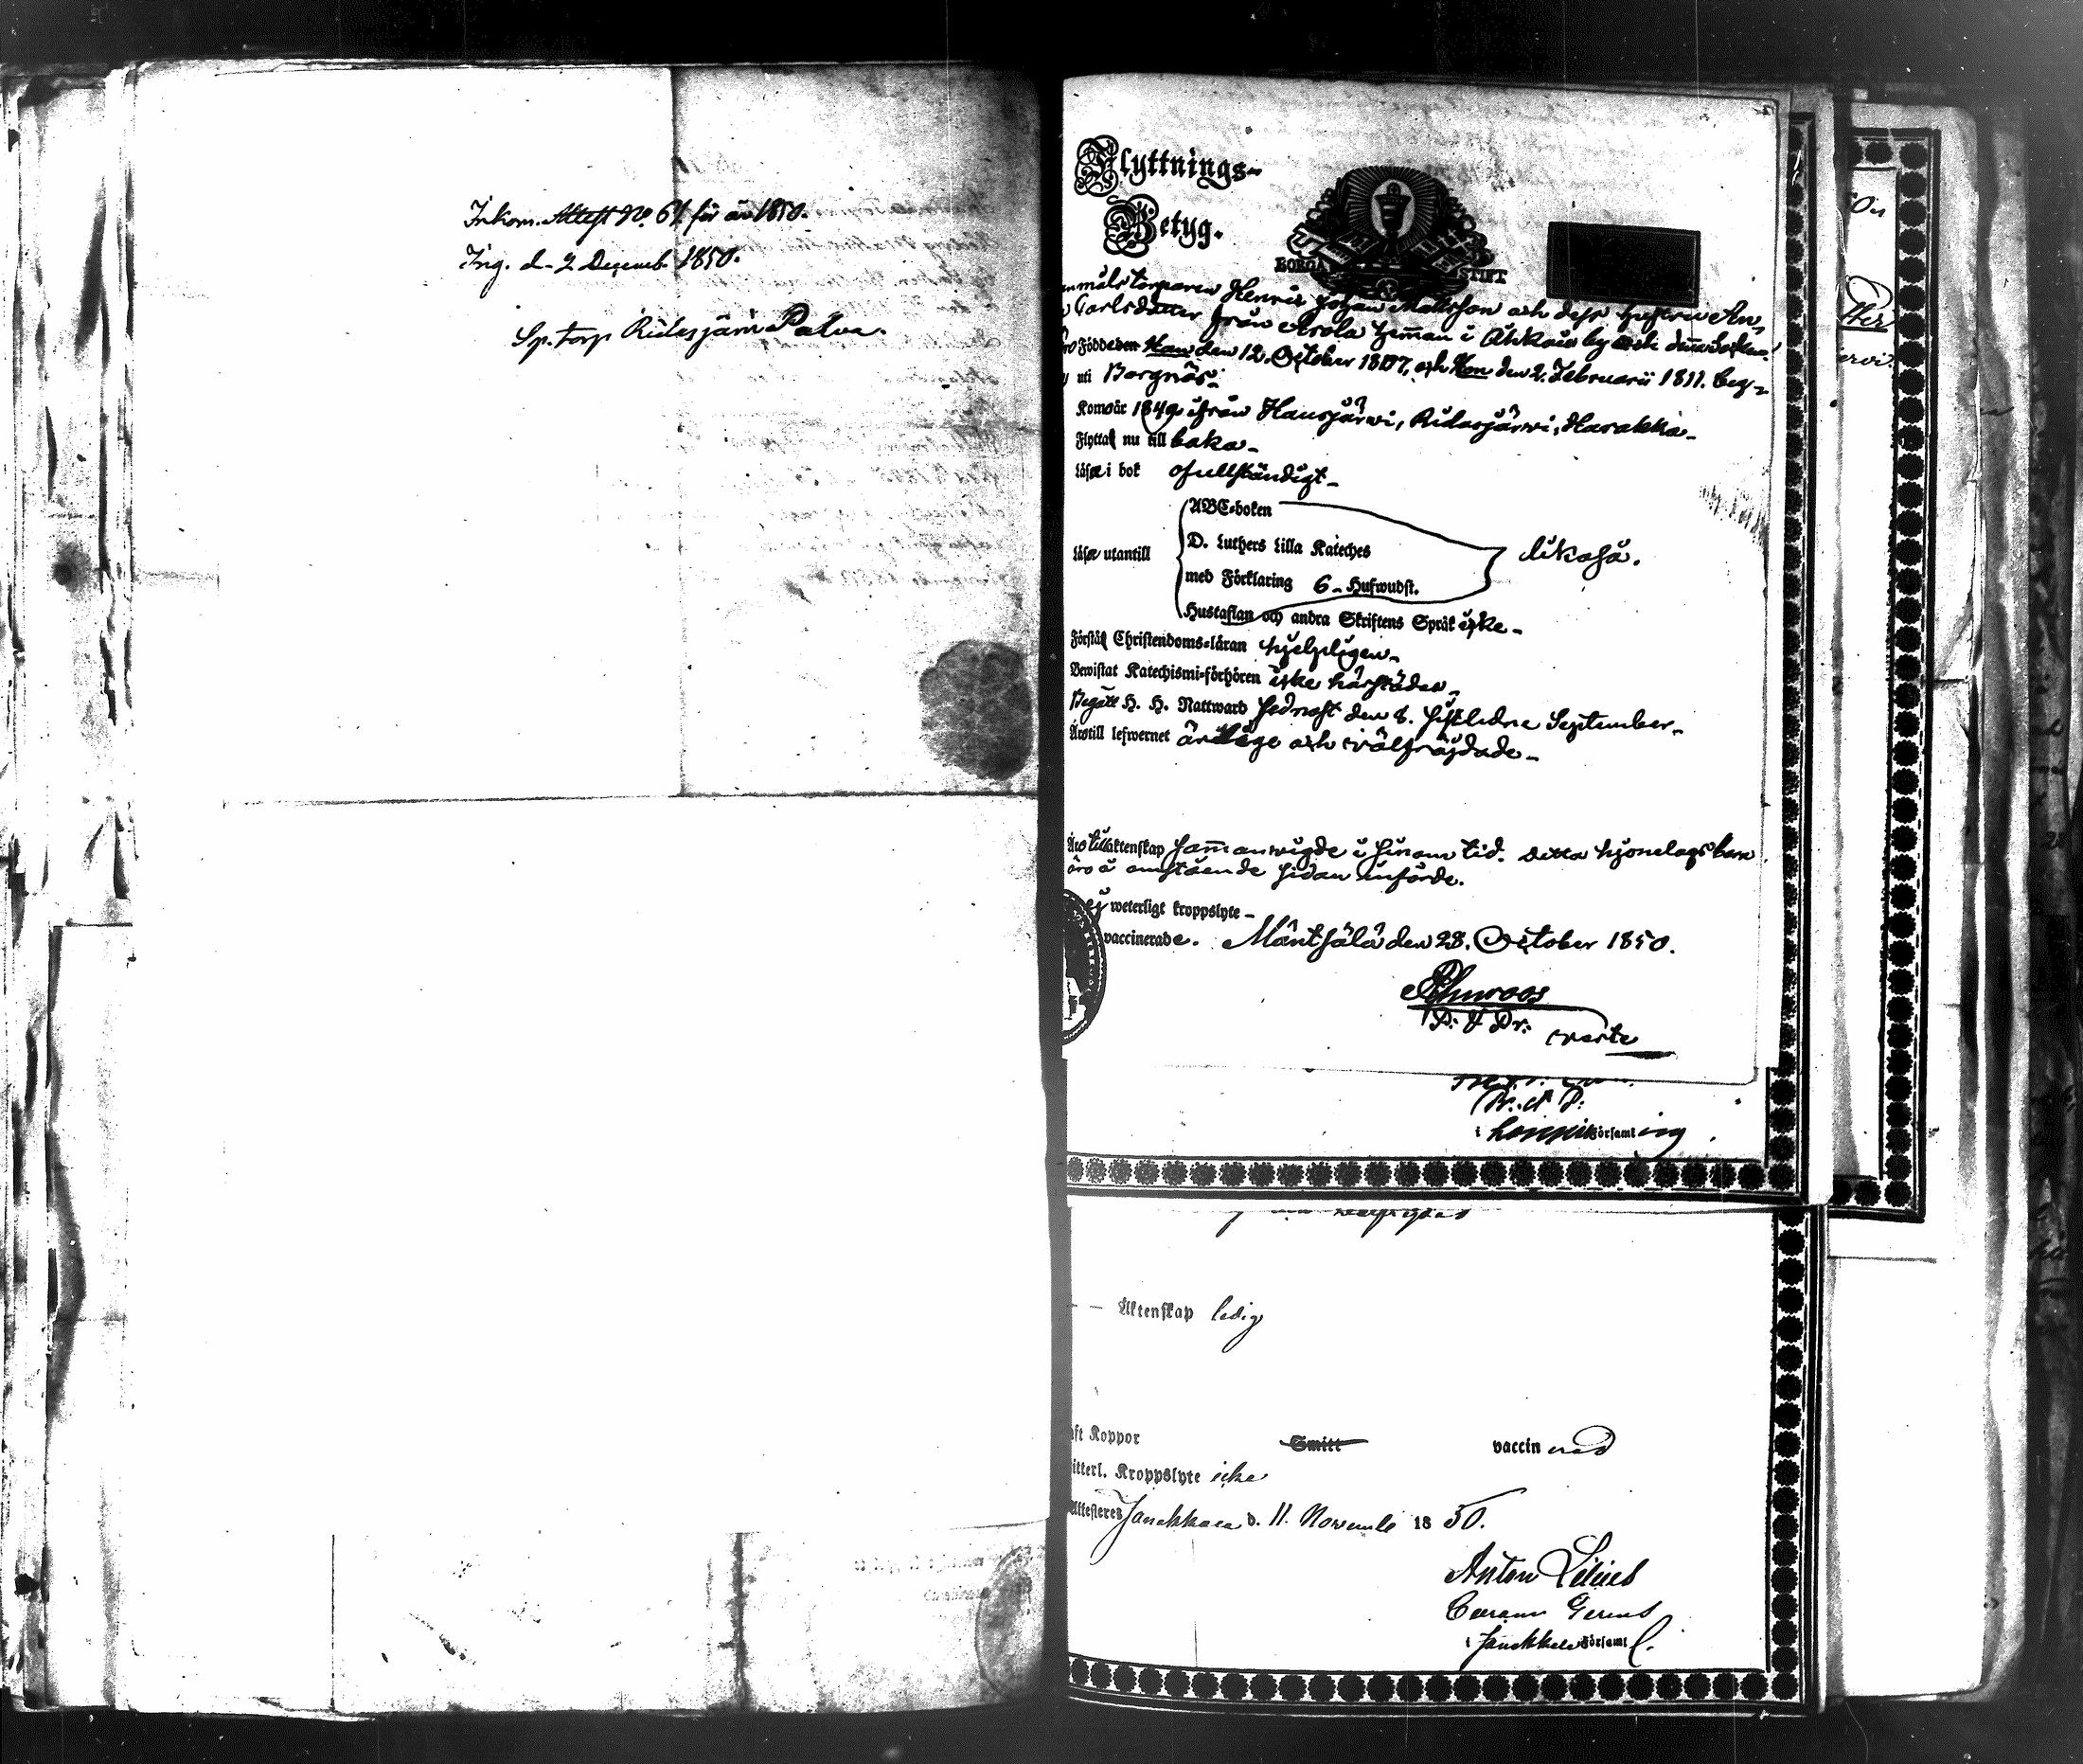 Inkom. Attest No 61 för år 1850.
Ing. d. 2 Decemb. 1850.
Sp. torp Ridasjärvi Palva.
Flyttnings-
Betyg.
BORGÅ STIFT
torparen Henric Johan Mattsson och dess hustru An-
Carlsdotter från Arola hemman i Ohkola by och denna Socken.
Födde den Han den 12. October 1807, och Hon den 2. Februarii 1811. beg-
uti Borgnäs.
Komo år 1849 ifrån Hausjärwi, Ridasjärwi, Harakka-
Flytta nu till baka-
Läsa i bok ofullständigt-
Läsa utantill
ABC-boken
D. Luthers Lilla Kateches
med Förklaring 6- Hufwudst.
likaså.
Hustaflan och andra Skriftens Språk icke-
Förstå Christendoms-läran hjelpligen-
Bewistat Katechismi-förhören icke härstädes-
Begått H. H. Nattward sednast den 8. sistledne September-
Äro till lefwernet ärlige och välfräjdade-
Äro till äktenskap sammanwigde i sinom tid. Detta hjonelags barn
äro å omstående sidan införde.
ej weterligt kroppslyte-
vaccinerade. Mäntsälä den 28. October 1850.
verte
i Loppis Församling
Äktenskap ledig
Koppor Smitt vaccinerad
Kroppslyte icke
Attesteras Janakkala d. 11. Novemb 1850.
Anton Lilius
i Janakkala Församl.